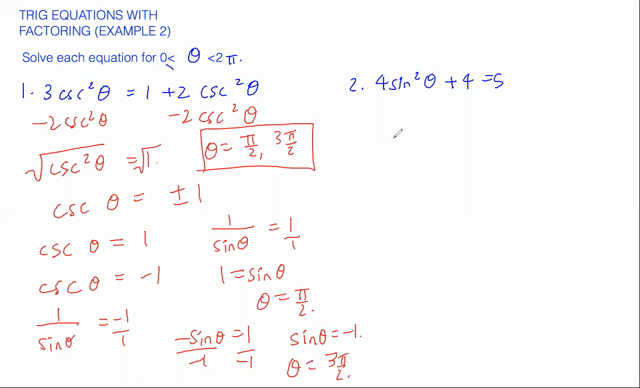 TRIG EQUATIONS WITH
FACTORING (EXAMPLE 2)
Solve each equation for 0≤ θ <2π.
1. 3 csc²θ = 1 + 2 csc²θ
-2csc²θ -2csc²θ
√csc²θ = √1.
csc θ = ±1
csc θ = 1
csc θ = -1
1/sinθ = -1/1
θ = π/2, 3π/2
1/sinθ = 1/1
1 = sinθ
θ = π/2.
-sinθ/-1 = 1/-1
sinθ = -1.
θ = 3π/2.
2. 4sin²θ + 4 = 5